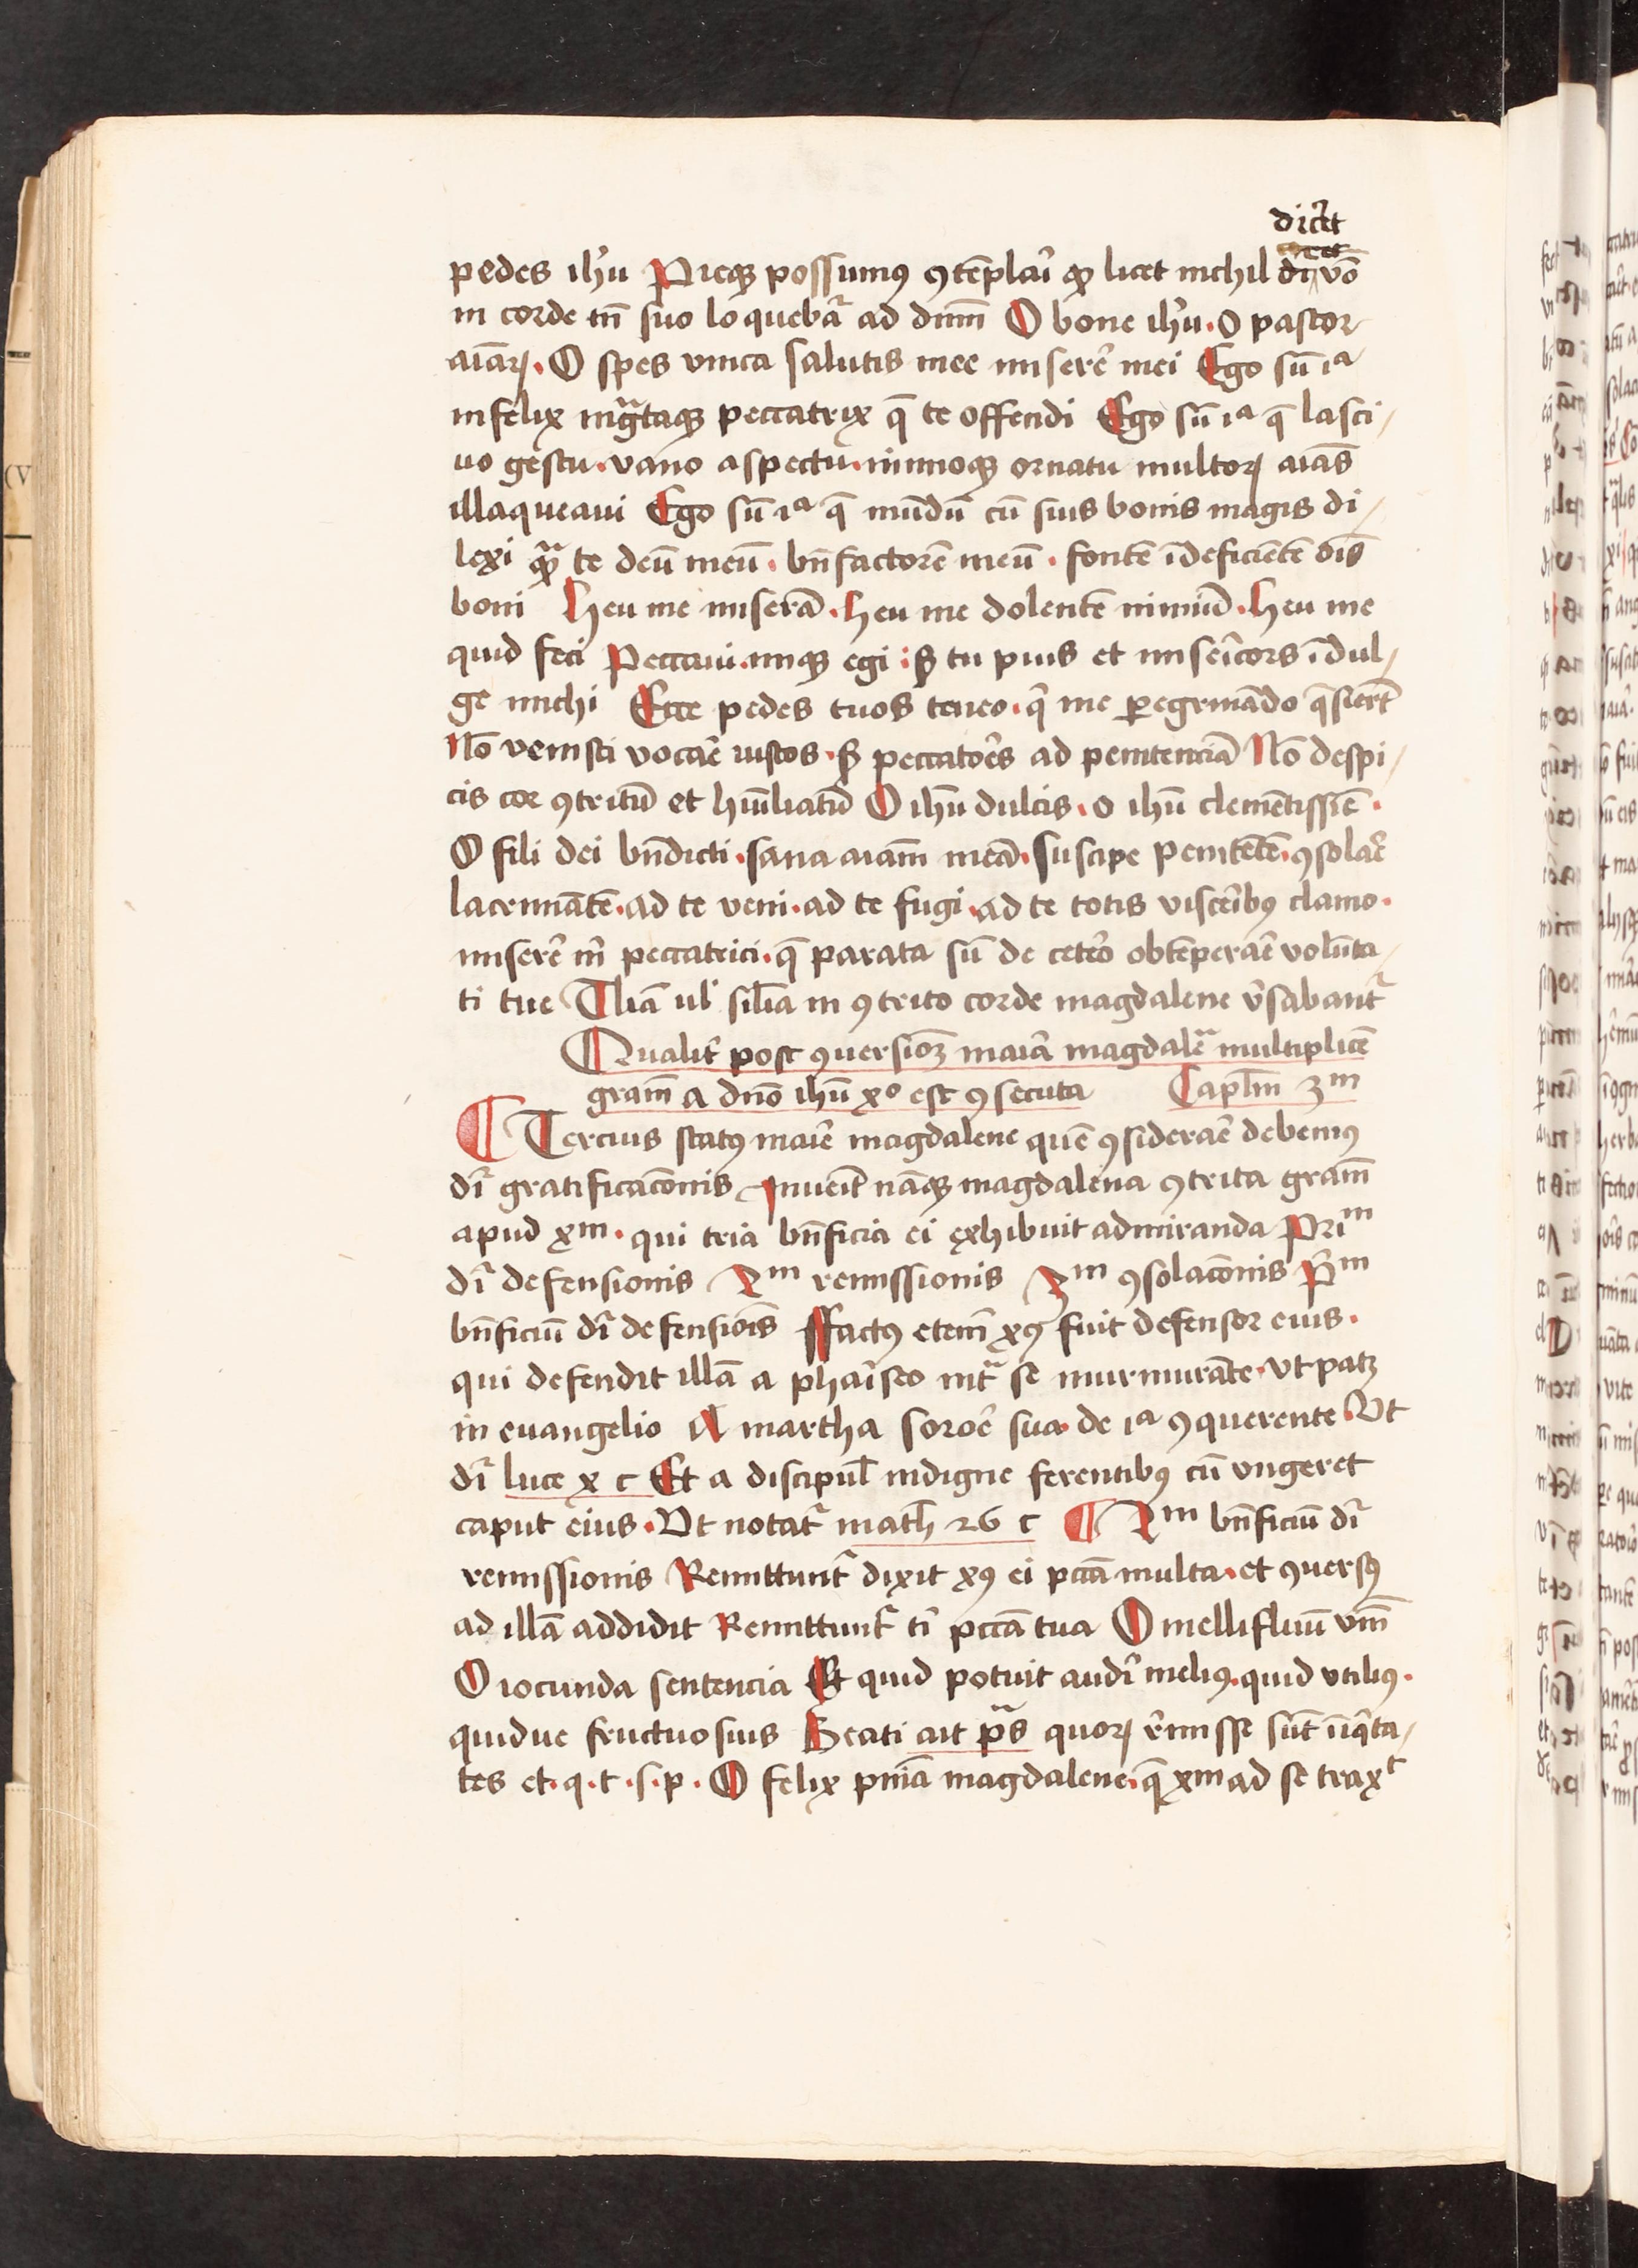 dicēt
pedes ih̄u Pieqꝫ possumꝰ ꝯtēplaī ꝙ licet nichil di vō
in corde tn̄ suo loquebat᷑ ad dn̄m O bone ih̄u. o pastor
aīaꝝ. O spes vnica salutis mee miserē mei Ego sū iᵃ
infelix ingᵃtaqꝫ peccatrix q̄ te offendi Ego sū iᵃ q̄ lasci/
uo gestu. vano aspectu. nimioqꝫ ornatu multoꝝ aīas
illaqueaui Ego sū iᵃ q̄ mūdū cū suis bonis magis di/
lexi qᵃ te deū meū. bn̄factorē meū. fontē īdeficiētē oīs
boni Heu me miserā. heu me dolentē nimiū. heu me
quid feci Peccaui. iniqꝫ egi. sꝫ tu pius et misēicors īdul/
ge michi Ecce pedes tuos teneo. q̄ me ꝑegrinādo q̄siert̄
Nō venisti vocaē iustos. sꝫ peccatoēs ad penitenciā Nō despi/
cis cor ꝯtritū et hūiliatū O ihū dulcis. o ihū clemētissīe.
O fili dei bn̄dicti. sana aīam meā. suscipe penitētē. ꝯsolaē
lacrimātē. ad te veni. ad te fugi. ad te totis viscēibꝰ clamo.
miserē m̄ peccatrici. q̄ parata sū de cetēo obtēperaē volūta/
ti tue Tliā ul' silīa in ꝯtrito corde magdalene v̄sabant᷑
Qualit̄ post ꝯuersioꝫ maīa magdalēᵃ multiplicē
grām a dn̄o ihū xº est ꝯsecuta Capl̄m 3ᵐ
¶ Tercius statꝰ maīe magdalene quē ꝯsideraē debemꝰ
dr̄ gratificac̄onis Inueīt nāqꝫ magdalena ꝯtrita grām
apud xᵐ. qui tria bn̄ficia ei exhibuit admiranda Priᵐ
dr̄ defensionis 2ᵐ remissionis 3ᵐ ꝯsolac̄onis P̄ᵐ
bn̄ficiū dr̄ defensiōis ffactꝰ etem̄ xꝰ fuit defensor eius.
qui defendit illā a phaīseo int᷑ se murmurāte. vt patꝫ
in euangelio A martha soroē sua de iᵃ ꝯquerente Vt
dr̄ luce x c Et a discipul̄ indigne ferentibꝰ cū vngeret
caput eius. Vt notat᷑ math̄ 26 c ¶ 2ᵐ bn̄ficiū dr̄
remissionis Remittunt᷑ dixit xꝰ ei pccā multa. et ꝯuersꝰ
ad illā addidit Remittunt᷑ ti' pccā tua O mellifluū v̄m
O iocunda sentencia Et quid potuit audī meliꝰ. quid vtiliꝰ.
quidue fructuosius Beati ait ps̄ quoꝝ r̄misse sūt īiq̄ta/
tes et. q. t. s. p. O felix pn̄īa magdalene. q̄ xm ad se traxᵗ